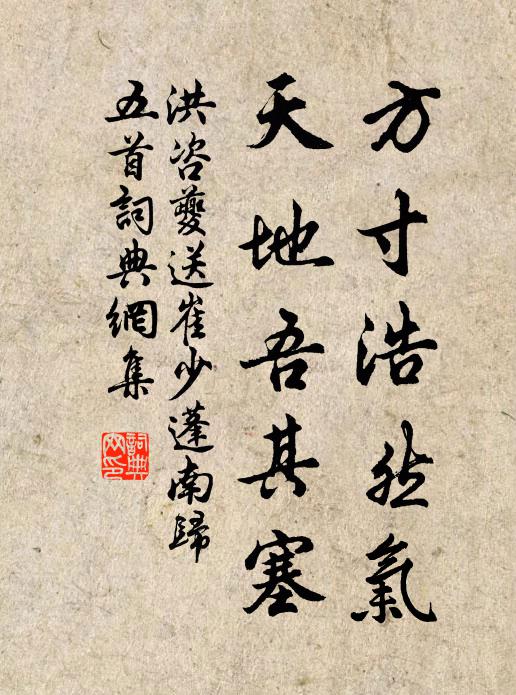 方寸浩然氣
天地吾其塞
洪咨夔送崔少蓬南歸
五首詞典網集
詞典
网印